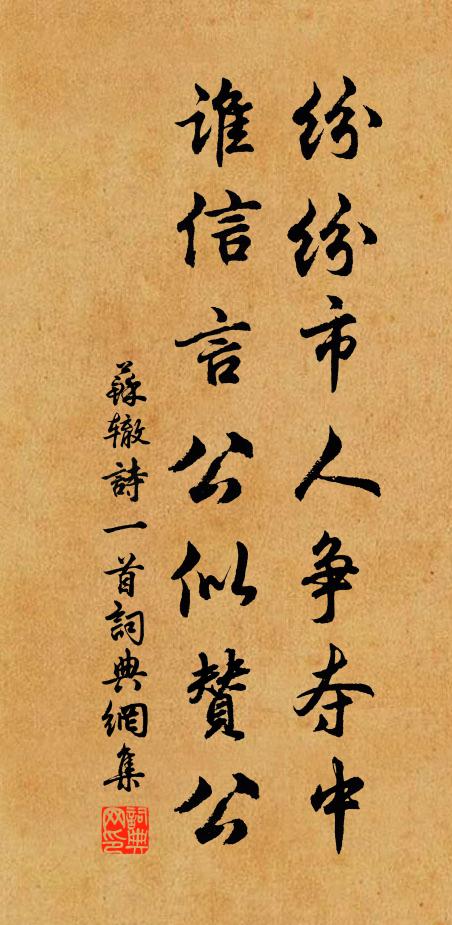 纷纷市人争夺中
谁信言公似赞公
蘇辙詩一首詞典網集
詞典网印